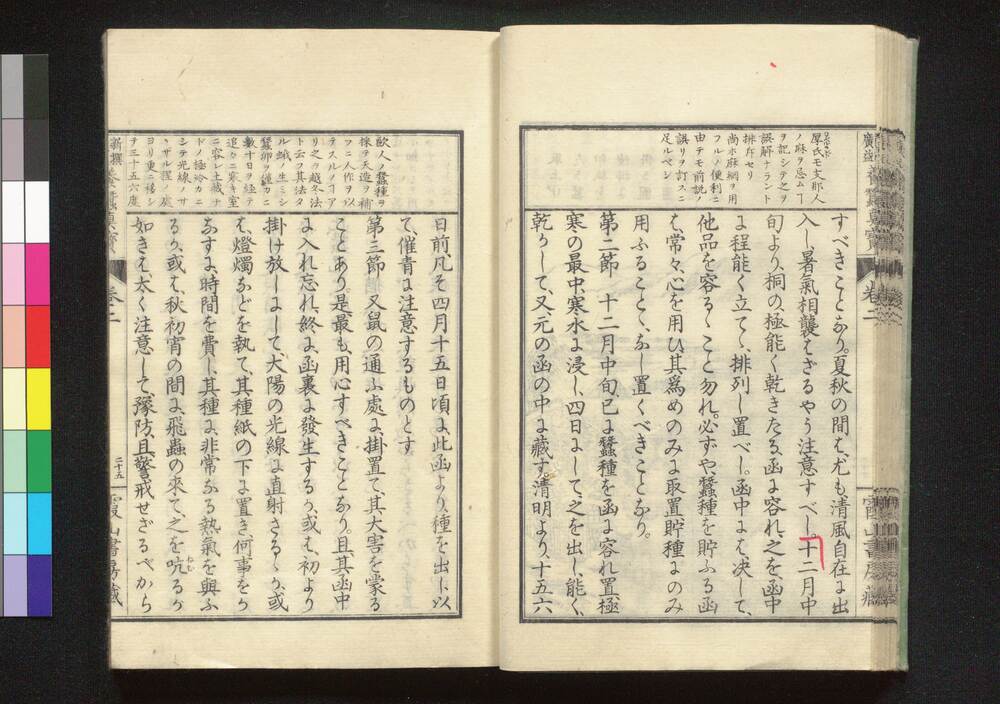 厚氏モ支那人
ノ麻ヲ忌ムヿ
ヲ記シテ之ヲ
誤解ナラント
排斥セリ
尚ホ麻網ヲ用
フルノ便利ニ
由テモ前説ノ
誤リヲ訂スニ
足ルベシ
すべきことなり。夏秋の間は、尤も、清風自在に出
入し、暑氣相襲はざるやう注意すべし。十二月中
旬より、桐の極能く乾きたる、函に容れ、之を、函中
に程能く立てゝ、排列し置べし。函中には、决して、
他品を容るゝこと勿れ。必ずや、蠶種を貯ふる函
は、常々、心を用ひ、其爲めのみに取置、貯種にのみ
用ふることゝ、なし置くべきことなり。
第二節　十二月中旬、已に蠶種を、函に容れ置、極
寒の最中、寒水に浸し、四日にして、之を出し、能く、
乾かして、又、元の函の中に藏す。清明より、十五六
歐人ノ蠶種ヲ
採ヤ天造ヲ補
フニ人作ヲ以
テスルノ一ア
リ之ヲ越冬法
ト云フ其法タ
ル蛾ノ生ミシ
蠶卵ヲ僅カニ
數十日ヲ經テ
追々ニ寒キ室
ニ容レ土藏ナ
ドノ極冷カニ
シテ光線ノサ
ヽザル握ノ處
ヨリ更ニ移シ
テ三十五六度
日前、凡そ四月十五日頃に、此函より、種を出し、以
て、催青に注意するものとす
第三節　又、鼠の通ふ處に、掛置て、其大害を蒙る
ことあり。是、最も、用心すべきことなり。且、其函中
に入れ忘れ、終に、函裏に發生するか、或は、初より
掛け放しにして、大陽の光線に直射さるゝか、或
は、燈燭などを執て、其種紙の下に置き、何事をか
なすに、時間を費し、其種に、非常なる熱氣を與ふ
るか、或は、秋初宵の間に、飛蟲の來て、之を吮るか
如きは、太く注意して、豫防、且、警戒せざるべから
新撰養蠶眞寶
卷二
二十五
霞山書房藏